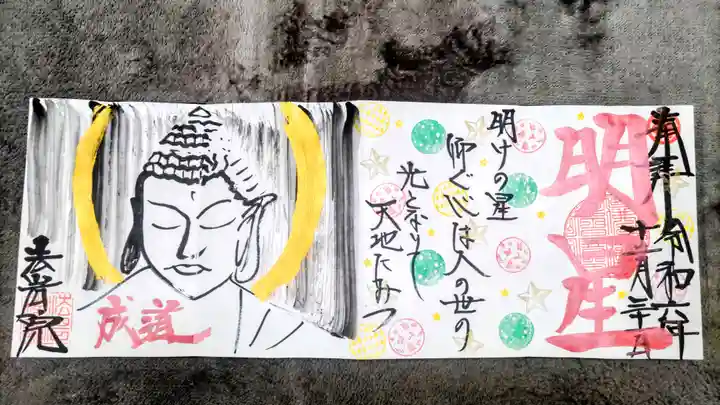 奉拝 令和六年
十二月二十五日
明星
明けの星
仰ぐ心は人の世の
光となりて
天地にみつ
成道
法音院